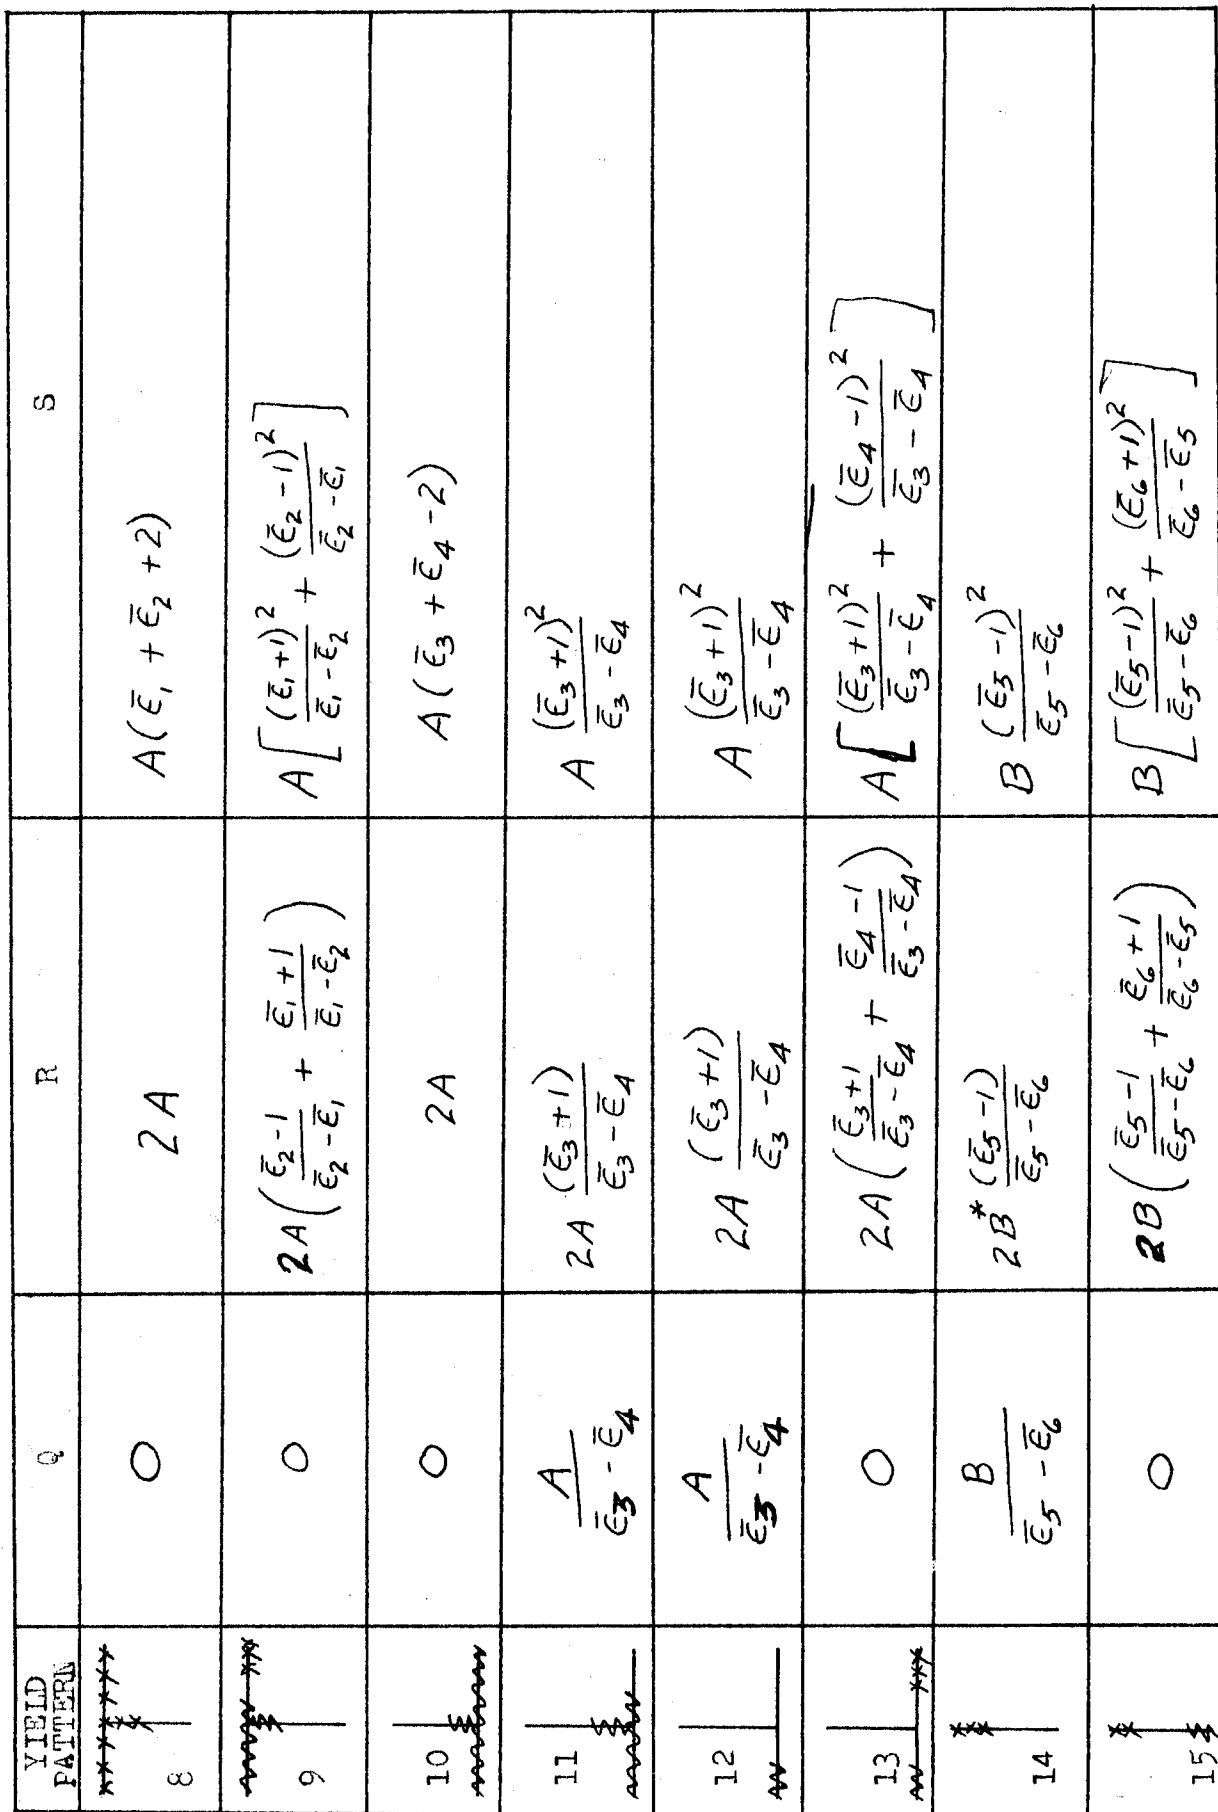 YIELD PATTERN | Q | R | S
8 | 0 | 2A | A(ε̄₁ + ε̄₂ + 2)
9 | 0 | 2A((ε̄₂ - 1)/(ε̄₂ - ε̄₁) + (ε̄₁ + 1)/(ε̄₁ - ε̄₂)) | A[(ε̄₁ + 1)²/(ε̄₁ - ε̄₂) + (ε̄₂ - 1)²/(ε̄₂ - ε̄₁)]
10 | 0 | 2A | A(ε̄₃ + ε̄₄ - 2)
11 | A/(ε̄₃ - ε̄₄) | 2A (ε̄₃ + 1)/(ε̄₃ - ε̄₄) | A (ε̄₃ + 1)²/(ε̄₃ - ε̄₄)
12 | A/(ε̄₃ - ε̄₄) | 2A (ε̄₃ + 1)/(ε̄₃ - ε̄₄) | A (ε̄₃ + 1)²/(ε̄₃ - ε̄₄)
13 | 0 | 2A((ε̄₃ + 1)/(ε̄₃ - ε̄₄) + (ε̄₄ - 1)/(ε̄₃ - ε̄₄)) | A[(ε̄₃ + 1)²/(ε̄₃ - ε̄₄) + (ε̄₄ - 1)²/(ε̄₃ - ε̄₄)]
14 | B/(ε̄₅ - ε̄₆) | 2B* (ε̄₅ - 1)/(ε̄₅ - ε̄₆) | B (ε̄₅ - 1)²/(ε̄₅ - ε̄₆)
15 | 0 | 2B((ε̄₅ - 1)/(ε̄₅ - ε̄₆) + (ε̄₆ + 1)/(ε̄₆ - ε̄₅)) | B[(ε̄₅ - 1)²/(ε̄₅ - ε̄₆) + (ε̄₆ + 1)²/(ε̄₆ - ε̄₅)]